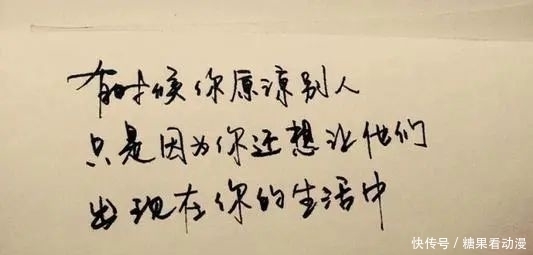 有时候你原谅别人
只是因为你还想让他们
出现在你的生活中
快传号／糖果看动漫